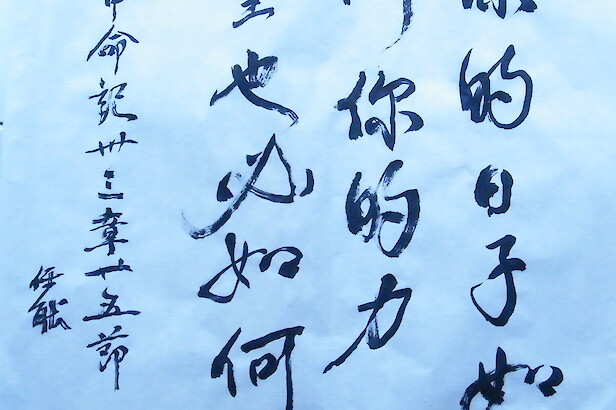 的日子如
你的力
也必如何
命記卅三章廿五節